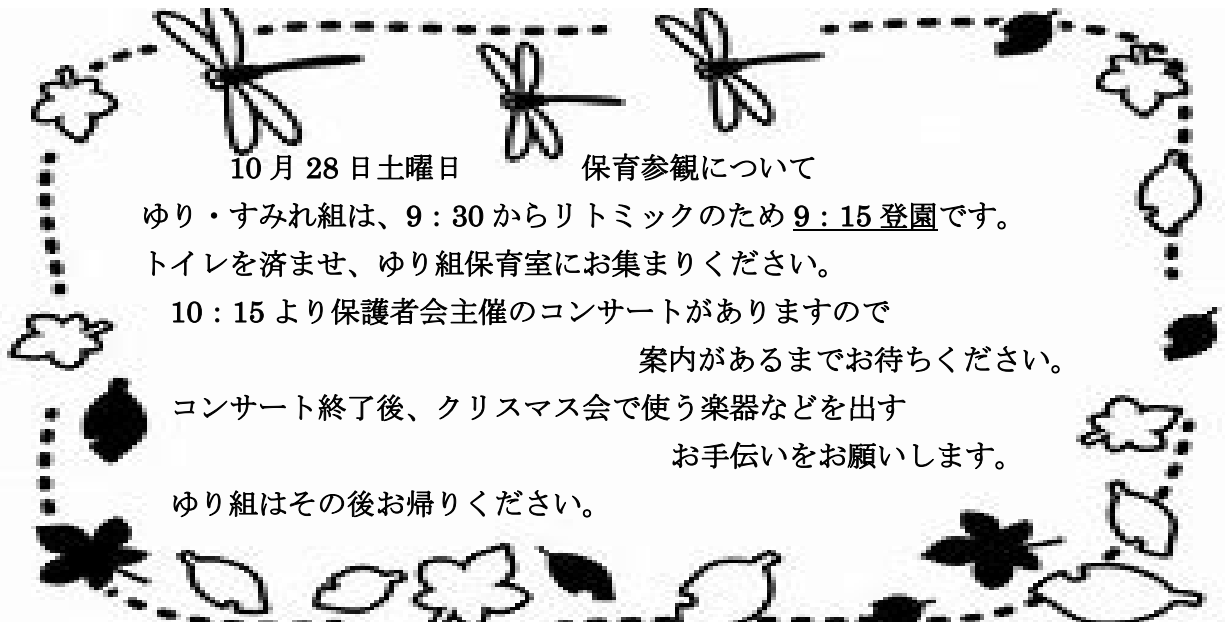 10月28日土曜日　　　　保育参観について
ゆり・すみれ組は、9：30からリトミックのため9：15登園です。
トイレを済ませ、ゆり組保育室にお集まりください。
10：15より保護者会主催のコンサートがありますので
案内があるまでお待ちください。
コンサート終了後、クリスマス会で使う楽器などを出す
お手伝いをお願いします。
ゆり組はその後お帰りください。